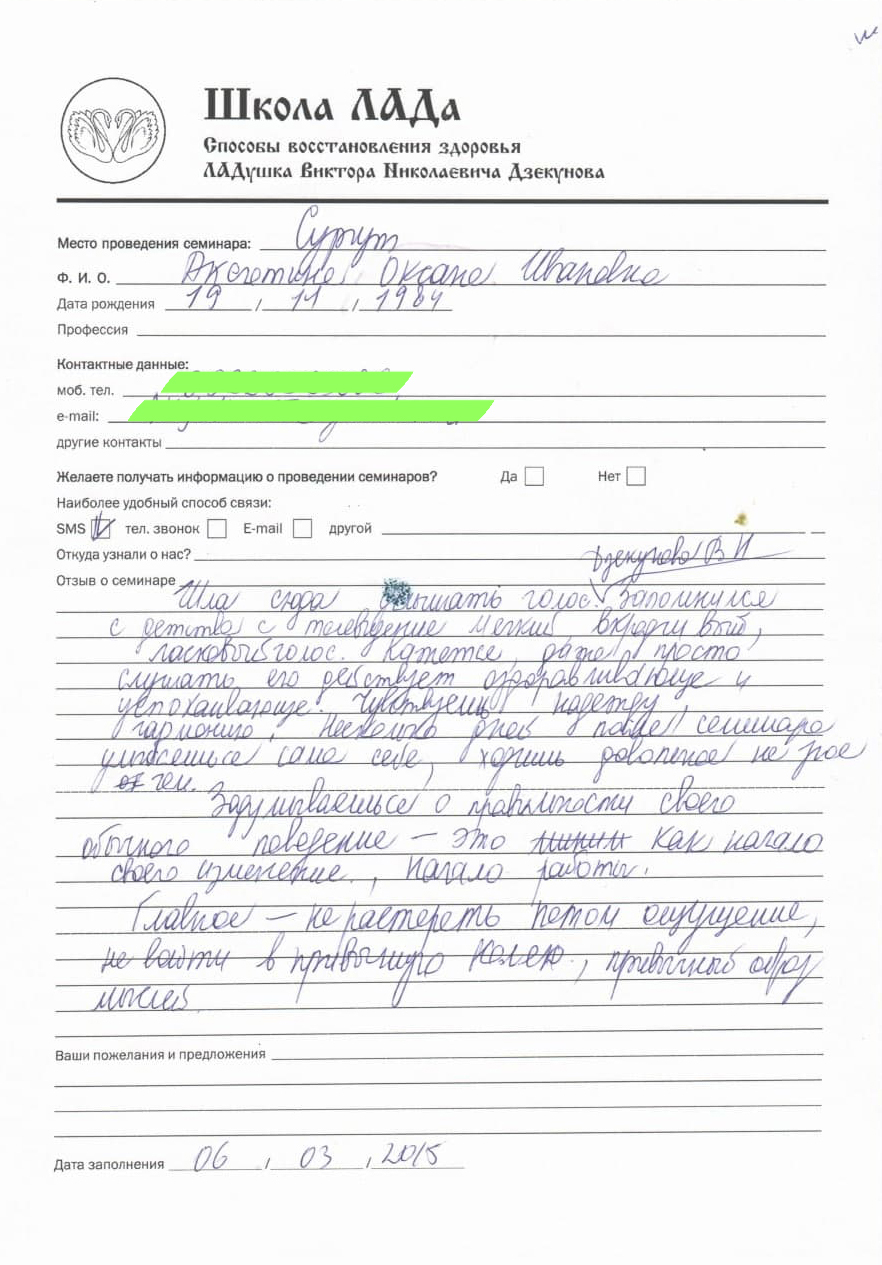 Школа ЛАДа
Способы восстановления здоровья
ЛАДушка Виктора Николаевича Дзекунова
Место проведения семинара: Сургут
Ф. И. О. Оксана Ивановна
Дата рождения 19 , 11 , 1984
Профессия
Контактные данные:
моб. тел.
e-mail:
другие контакты
Желаете получать информацию о проведении семинаров? Да Нет
Наиболее удобный способ связи:
SMS тел. звонок E-mail другой
Откуда узнали о нас?
Дзекунова В И
Отзыв о семинаре
Шла сюда услышать голос. Запомнился
с детства с телевидение мягкий вкрадчивый,
ласковый голос. Кажется, даже просто
слушать его действует оздоравливающе и
успокаивающе. Чувствуешь надежду,
гармонию. Несколько дней после семинара
улыбаешься сама себе, ходишь довольная не зная
от чего.
Задумываешься о правильности своего
обычного поведение – это как начало
своего изменение, начало работы.
Главное – не растереть потом ощущение,
не войти в привычную колею, привычный образ
мыслей.
Ваши пожелания и предложения
Дата заполнения 06 , 03 , 2015